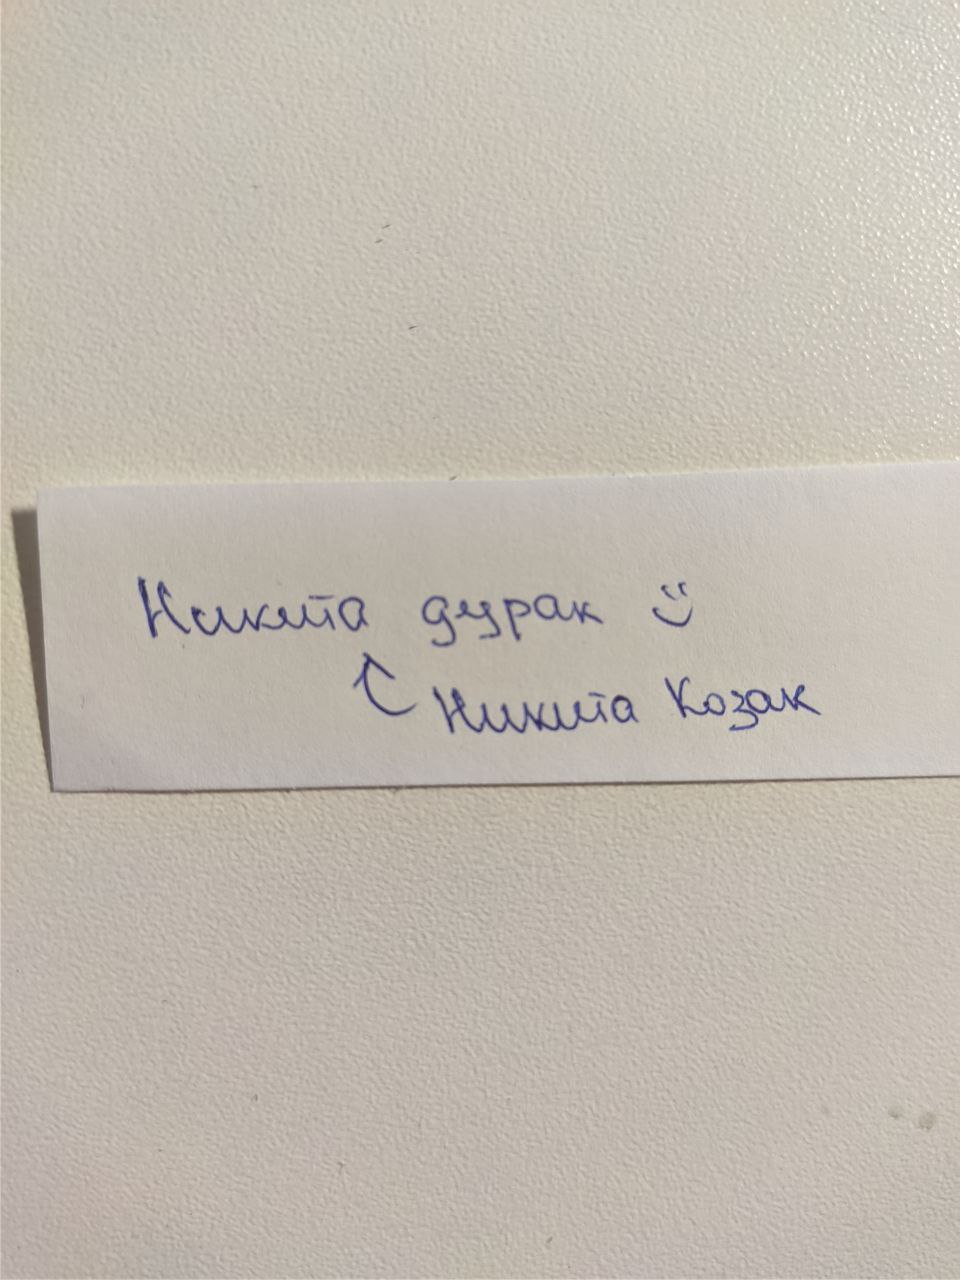 Никита дурак :)
Никита Козак